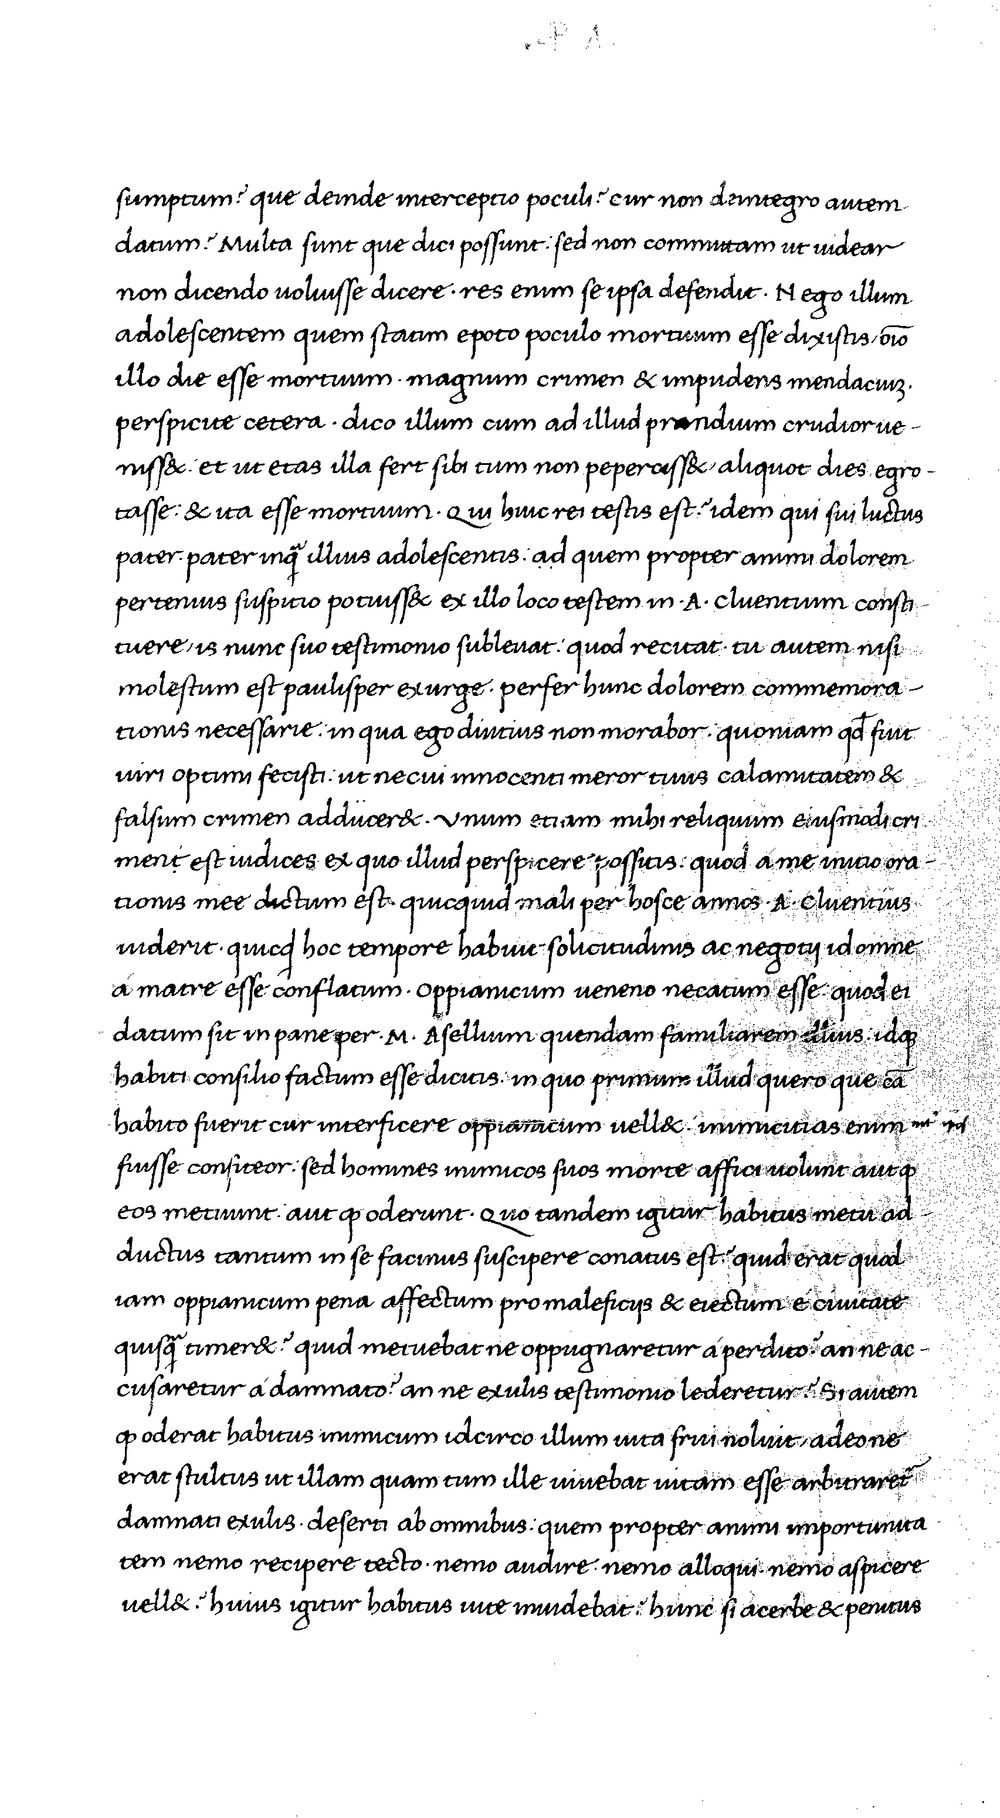 sumptum? que deinde interceptio poculi? cur non deintegro autem
datum? Multa sunt que dici possunt: sed non commitam ut uidear
non dicendo uoluisse dicere · res enim se ipsa defendit · Nego illum
adolescentem quem statim epoto poculo mortuum esse dixistis / oīo
illo die esse mortuum · magnum crimen & impudens mendaciuꝫ ·
perspicite cetera · dico illum cum ad illud prandium crudior ue-
niss&: et ut etas illa fert sibi tum non peperciss& / aliquot dies egro-
tasse: & ita esse mortuum · Qui huic rei testis est? idem qui sui luctus
pater · pater inqͣ illius adolescentis: ad quem propter animi dolorem
pertenuis suspitio potuiss& ex illo loco testem in · A · Cluentium consti-
tuere / is nunc suo testimonio subleuat: quod recitat · tu autem nisi
molestum est paulisper exurge · perfer hunc dolorem commemora-
tionis necessarie: in qua ego diutius non morabor: quoniam qđ fuit
uiri optimi fecisti: ut ne cui innocenti meror tuus calamitatem &
falsum crimen adducer& · Vnum etiam mihi reliquum eiusmodi cri
meni est iudices ex quo illud perspicere possitis: quod a me initio ora-
tionis mee dictum est · quicquid mali per hosce annos · A · Cluentius
uiderit · quicq̃d hoc tempore habuit solicitudinis ac negotij id omne
á matre esse conflatum · oppianicum ueneno necatum esse · quod ei
datum sit in pane per · M · Asellium quendam familiarem illius: idqꝫ
habiti consilio factum esse dicitis: in quo primum illud quero que cā
habito fuerit cur interficere oppianicum uell&: inimicitias enim
fuisse confiteor: sed homines inimicos suos morte affici uolunt aut ꝙ
eos metuunt: aut ꝙ oderunt · Quo tandem igitur habitus metu ad-
ductus tantum in se facinus suscipere conatus est? quid erat quod
iam oppianicum pena affectum pro maleficijs & eiectum e ciuitate
quisqͣ timer&? quid metuebat ne oppugnaretur á perdito? an ne ac-
cusaretur á damnato? an ne exulis testimonio lederetur? Si autem
ꝙ oderat habitus inimicum idcirco illum uita frui noluit / adeo ne
erat stultus ut illam quam tum ille uiuebat uitam esse arbitraret᷑
damnati exulis · deserti ab omnibus: quem propter animi importunita
tem nemo recipere tecto · nemo audire · nemo alloqui · nemo aspicere
uell&? huius igitur habitus uite inuidebat? hunc si acerbe & penitus